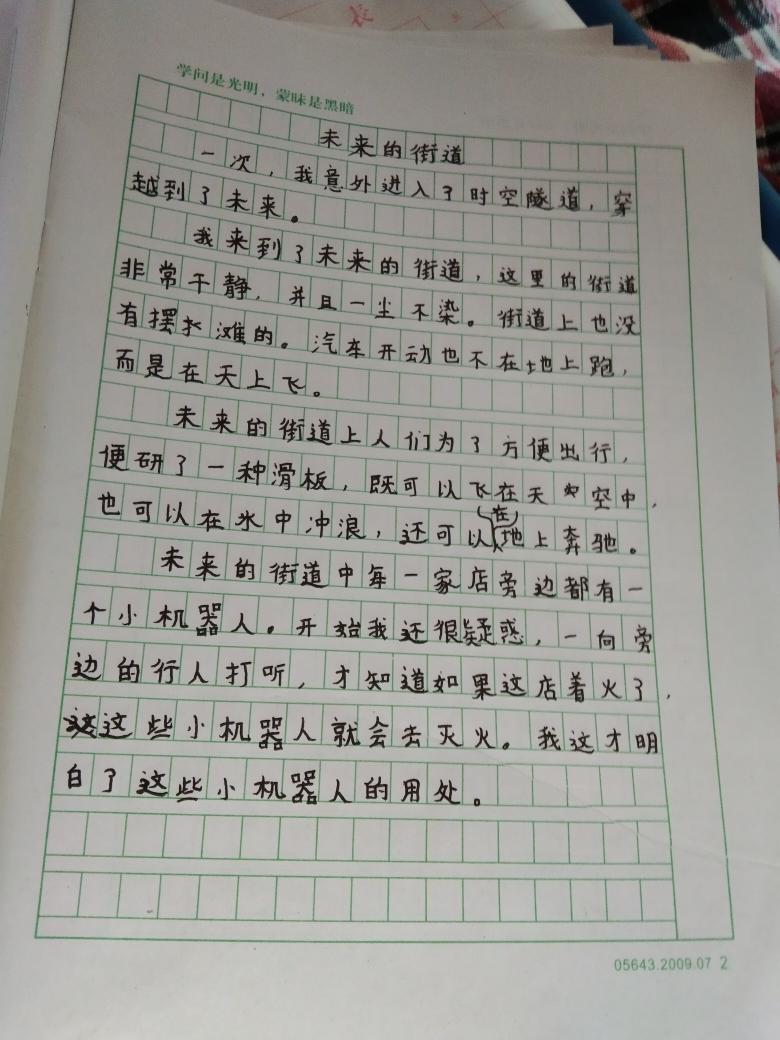 学问是光明，蒙昧是黑暗
未来的街道
一次，我意外进入了时空隧道，穿
越到了未来。
我来到了未来的街道，这里的街道
非常干静，并且一尘不染。街道上也没
有摆扌滩的。汽车开动也不在地上跑，
而是在天上飞。
未来的街道上人们为了方便出行，
便研了一种滑板，既可以飞在天空中，
也可以在水中冲浪，还可以在地上奔驰。
未来的街道中每一家店旁边都有一
个小机器人。开始我还很疑惑，一向旁
边的行人打听，才知道如果这店着火了，
这些小机器人就会去灭火。我这才明
白了这些小机器人的用处。
05643.2009.07 2